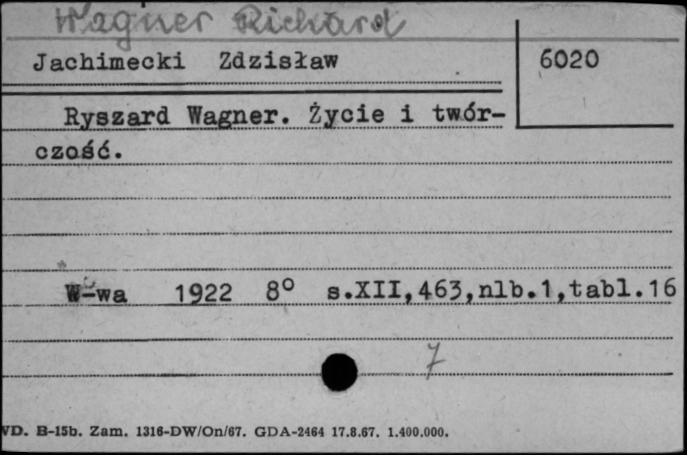 Wagner Richard
Jachimecki Zdzisław
6020
Ryszard Wagner. Życie i twór-
czość.
W-wa 1922 8° s.XII,463,nlb.1,tabl.16
7
VD. B-15b. Zam. 1316-DW/On/67. GDA-2464 17.8.67. 1.400.000.